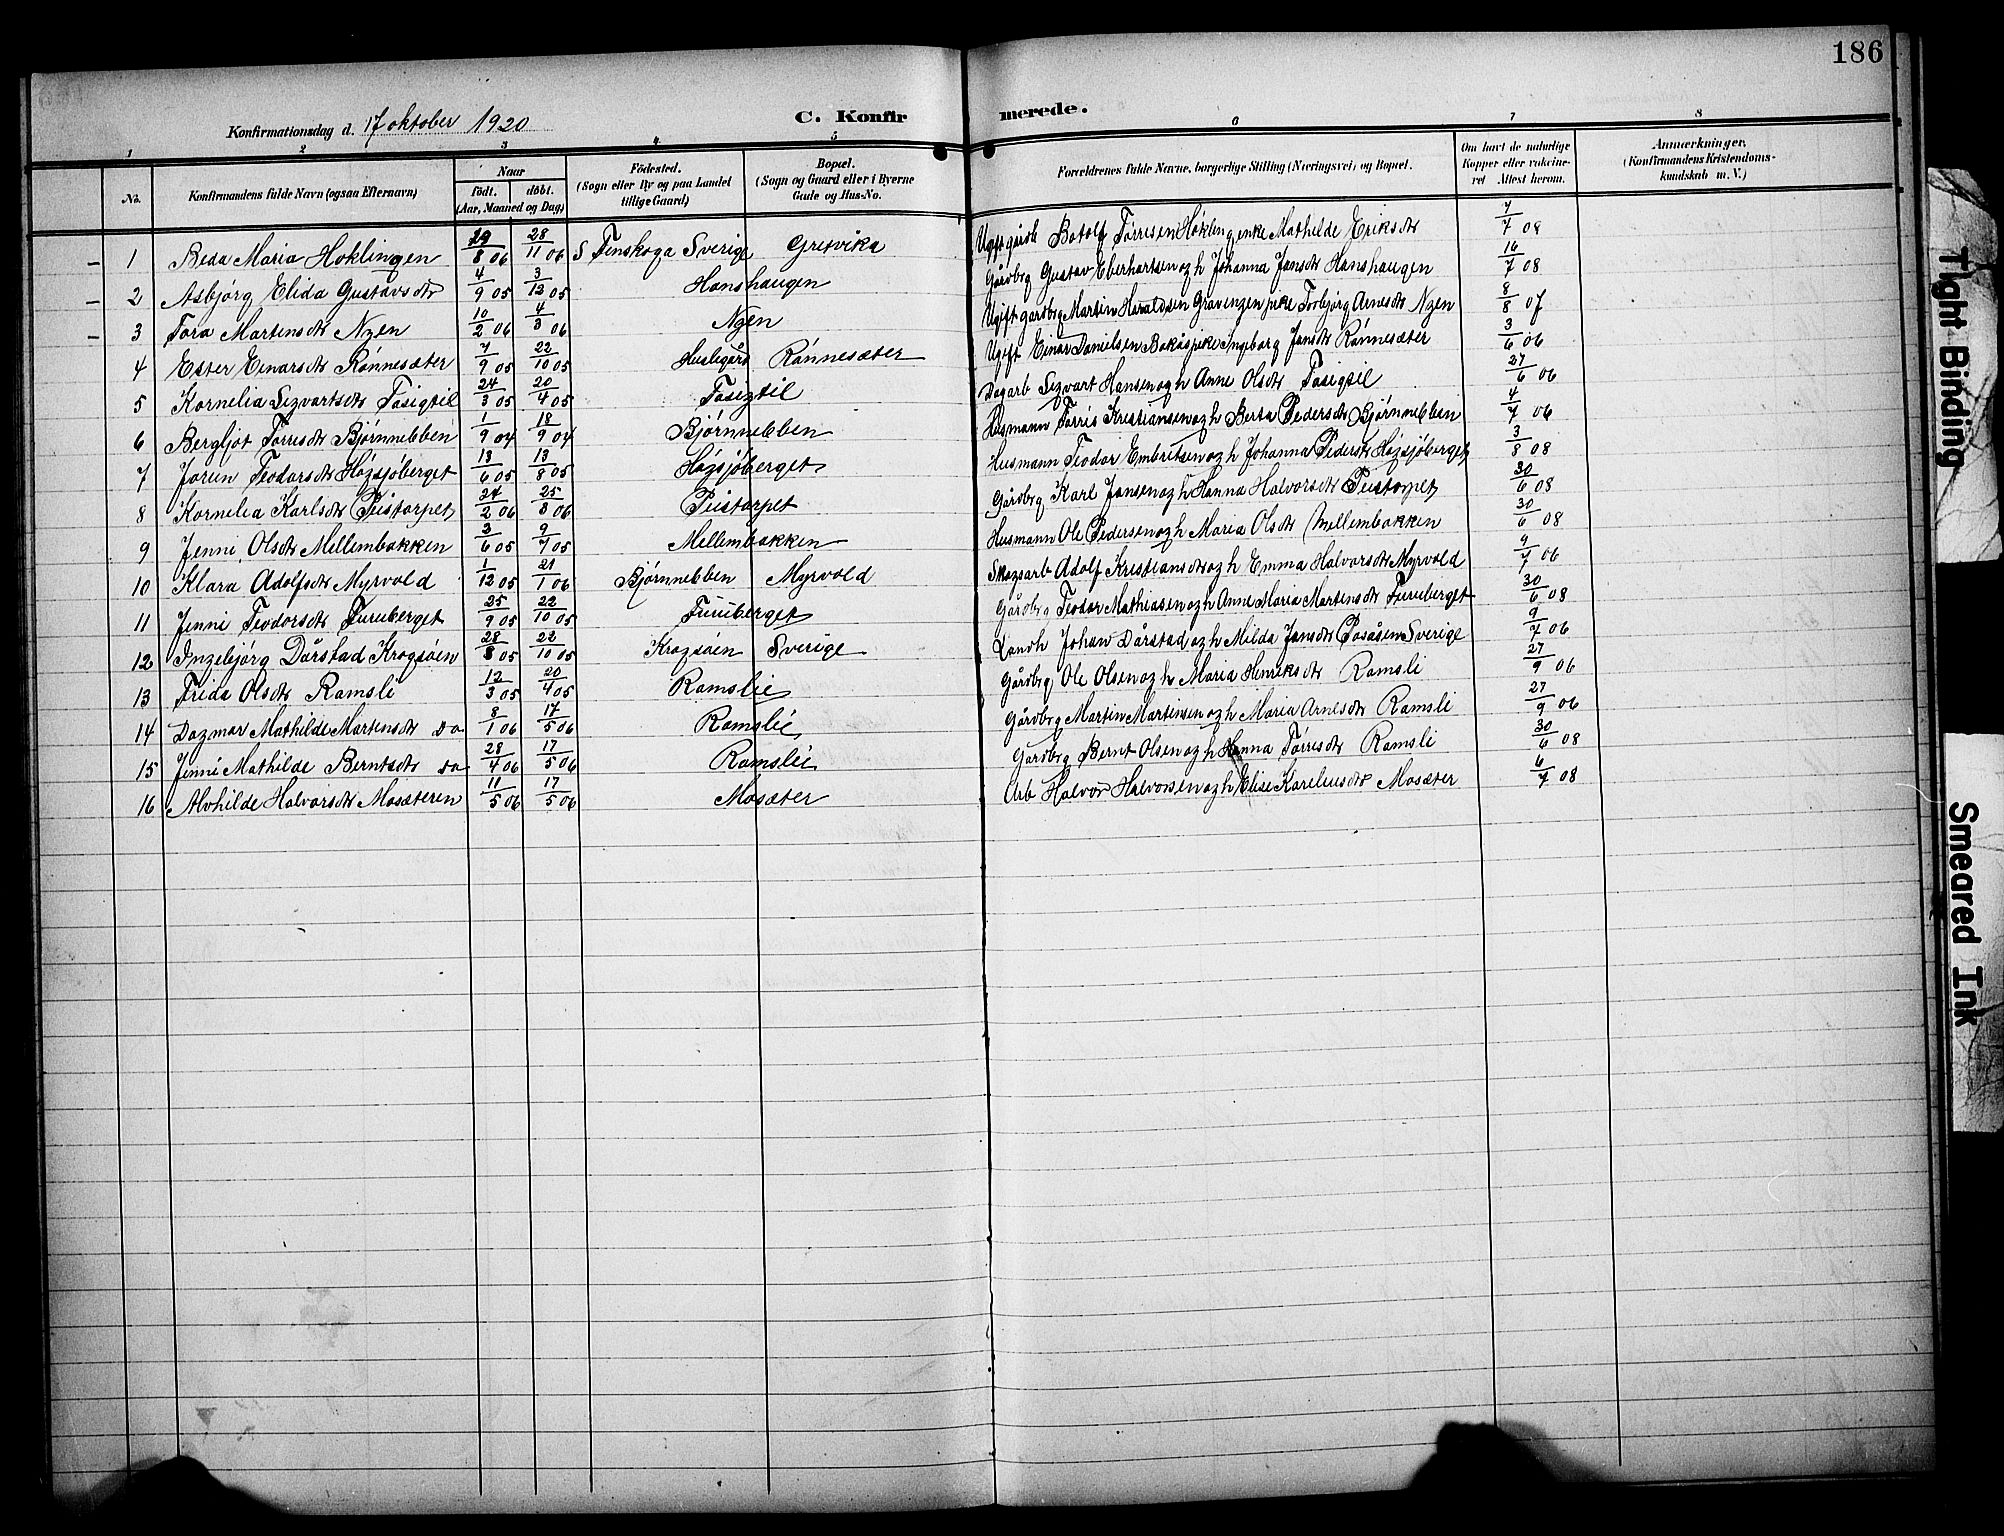 186
C. Konfirmerede.
Konfirmationsdag d. 17 oktober 1920
1 2 3 4 5 6 7 8
No. Konfirmandens fulde Navn (ogsaa Efternavn) Naar födt. döbt. (Aar, Maaned og Dag) Födested. (Sogn eller By og paa Landet tillige Gaard) Bopæl. (Sogn og Gaard eller i Byerne Gade og Hus-No. Forældrenes fulde Navne, borgerlige Stilling (Næringsvei) og Bopæl. Om havt de naturlige Kopper eller vakcineret Attest herom. Anmærkninger. (Konfirmandens Kristendomskundskab m. V.)
– 1 Beda Maria Hoklingen 29/8 06 28/11 06 S Finskoga Sverige Gresvika Ugift gårdb Botolf Tørrisen Høkling enke Mathilde Eriksdtr 7/7 08
– 2 Asbjørg Elida Gustavsdtr 4/9 05 3/12 05 Hanshaugen Gårdbrg Gustav Eberhartsen og h Johanna Jansdtr Hanshaugen 16/7 08
– 3 Tora Martensdtr Nyen 10/2 06 4/3 06 Nyen Ugift gårdbrg Martin Haraldsen Gravenzen pike Torbjørg Arnesdtr Nyen 8/8 07
4 Ester Einarsdtr Rønnesæter 7/9 05 22/10 05 Huslegård Rønnesæter Ugift Einar Danielsen Bakås pike Ingeborg Jansdtr Rønnesæter 3/6 06
5 Kornelia Sigvartsdtr Tasigtil 24/3 05 20/4 05 Tasigtil Dagarb Sigvart Hansen og h Anne Olsdtr Tasigtil 27/6 06
6 Bergljot Tørresdtr Bjørnnebben 1/9 04 18/9 04 Bjørnnebben Husmann Tørris Kristiansen og h Berta Pedersdtr Bjørnnebben 4/7 06
7 Jorun Teodorsdtr Høgsjøberget 13/6 05 13/8 05 Høgsjøberget Husmann Teodor Embretsen og h Johanna Pedersdtr Høgsjøberget 3/8 08
8 Kornelia Karlsdtr Peistorpet 24/2 06 25/3 06 Peistorpet Gårdbrg Karl Jansen og h Hanna Halvorsdtr Peistorpet 30/6 08
9 Jenni Olsdtr Mellembakken 3/6 05 9/7 05 Mellembakken Husmann Ole Pedersen og h Maria Olsdtr Mellembakken 30/6 08
10 Klara Adolfsdtr Myrvold 1/12 05 21/1 06 Bjørnnebben Myrvold Skogsarb Adolf Kristiansdtr og h Emma Halvorsdtr Myrvold 9/7 06
11 Jenni Teodorsdtr Furuberget 25/9 05 22/10 05 Furuberget Gårdbrg Teodor Mathiasen og h Anne Maria Martensdtr Furuberget 30/6 08
12 Ingebjørg Dårstad Krogsøen 28/8 05 22/10 05 Krogsøen Sverige Landh Johan Dårstad og h Milda Jansdtr Posåsen Sverige 9/7 06
13 Frida Olsdtr Ramsli 12/3 05 20/4 05 Ramslie Gårdbrg Ole Olsen og h Maria Henriksdtr Ramsli 27/9 06
14 Dagmar Mathilde Martensdtr do 8/1 06 17/5 06 Ramslie Gårdbrg Martin Martinsen og h Maria Arnesdtr Ramsli 27/9 06
15 Jenni Mathilde Berntsdtr do 28/4 06 17/5 06 Ramslie Gårdbrg Bernt Olsen og h Hanna Tørresdtr Ramsli 30/6 08
16 Alvhilde Halvorsdtr Mosæteren 11/5 06 17/5 06 Mosæter Arb Halvor Halvorsen og h Elise Kareliusdtr Mosæter 6/7 08
Tight Binding
Smeared Ink